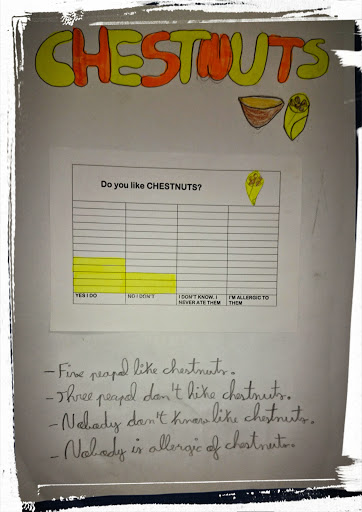 CHESTNUTS
Do you like CHESTNUTS?
YES I DO
NO I DON'T
I DON'T KNOW. I
NEVER ATE THEM
I'M ALLERGIC TO
THEM
- Five peapol like chestnuts.
- Three peapol don't like chestnuts.
- Nobody don't know like chestnuts.
- Nobody is allergic of chestnuts.